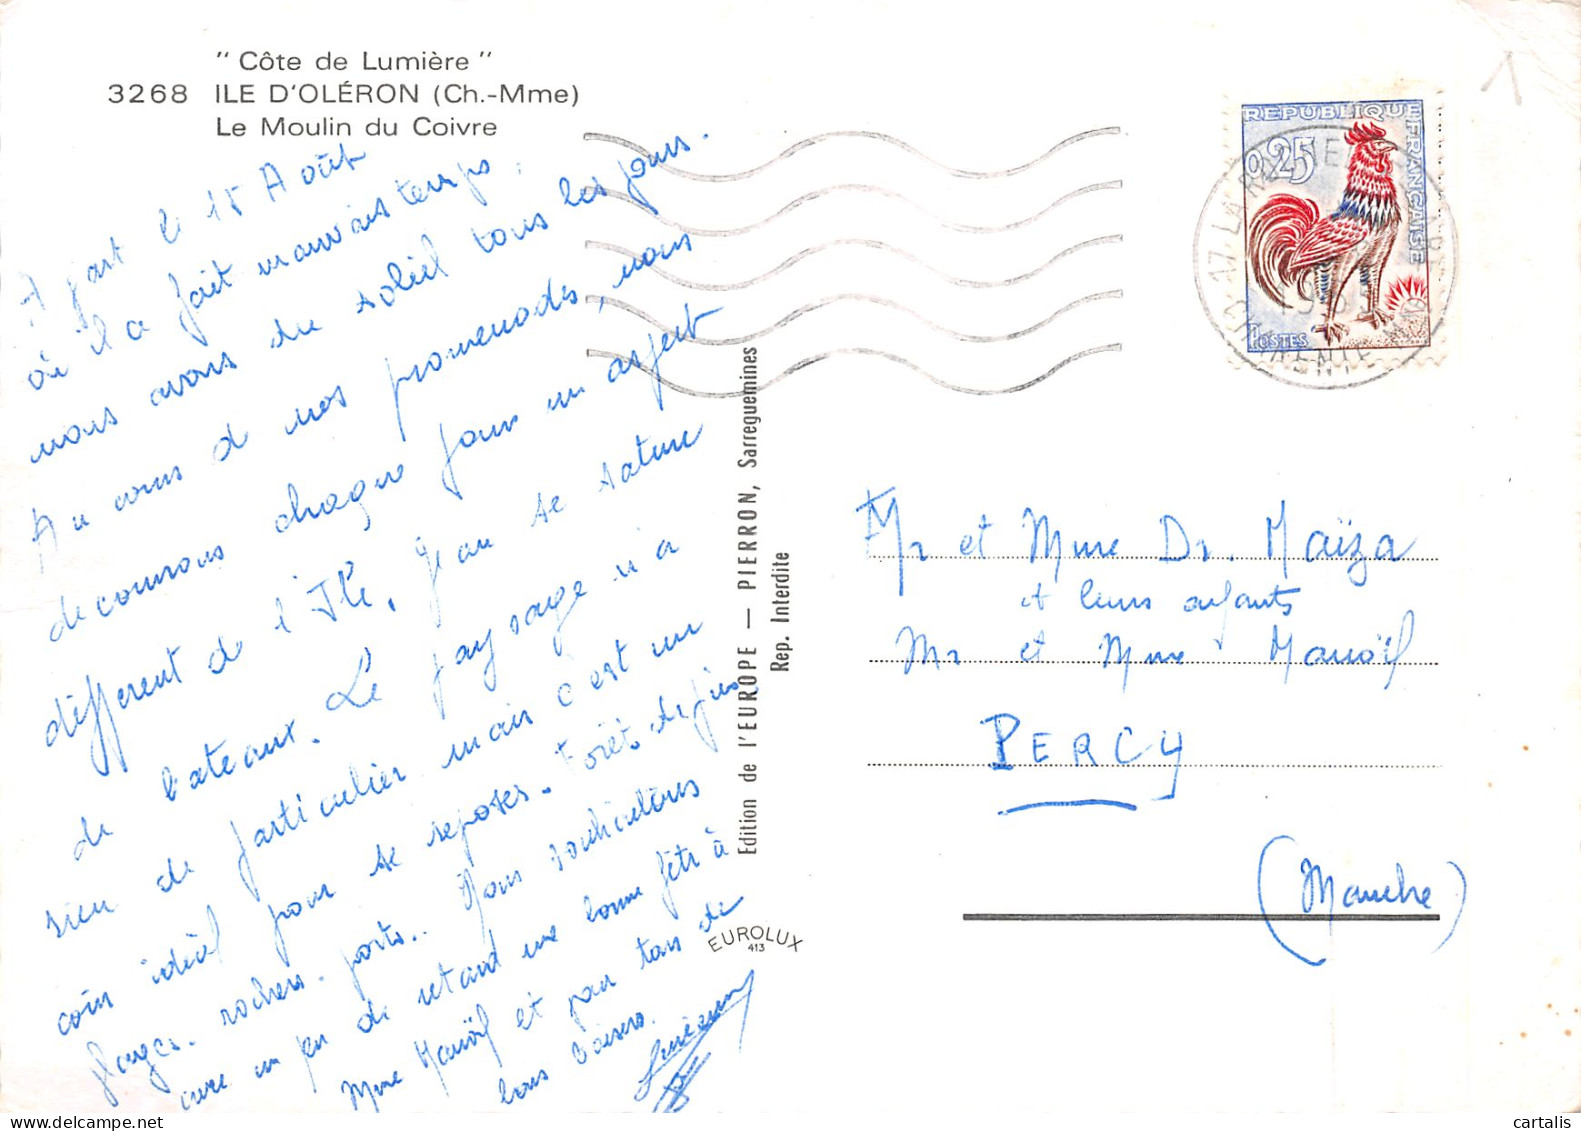 " Côte de Lumière "
3268 ILE D'OLÉRON (Ch.-Mme)
Le Moulin du Coivre
A part le 15 Août
où il a fait mauvais temps,
nous avons du soleil tous les jours.
Au cours de nos promenades, nous
découvrons chaque jour un aspect
différent de l'Ile. Jean se sature
de bateaux. Le paysage n'a
rien de particulier mais c'est un
coin idéal pour se reposer. Forêts de pins
plages. rochers. ports.. Nous souhaitons
avec un peu de retard une bonne fête à
Mme Manoël et par tous de
bons baisers.
Edition de l'EUROPE — PIERRON, Sarreguemines
Rep. Interdite
EUROLUX
413
REPUBLIQUE FRANÇAISE
0,25
POSTES
17 LA
CHARENTE
Mr et Mme Dr. Maïza
et leurs enfants
Mr et Mme Manoël
PERCY
(Manche)
1
cartalis
delcampe.net